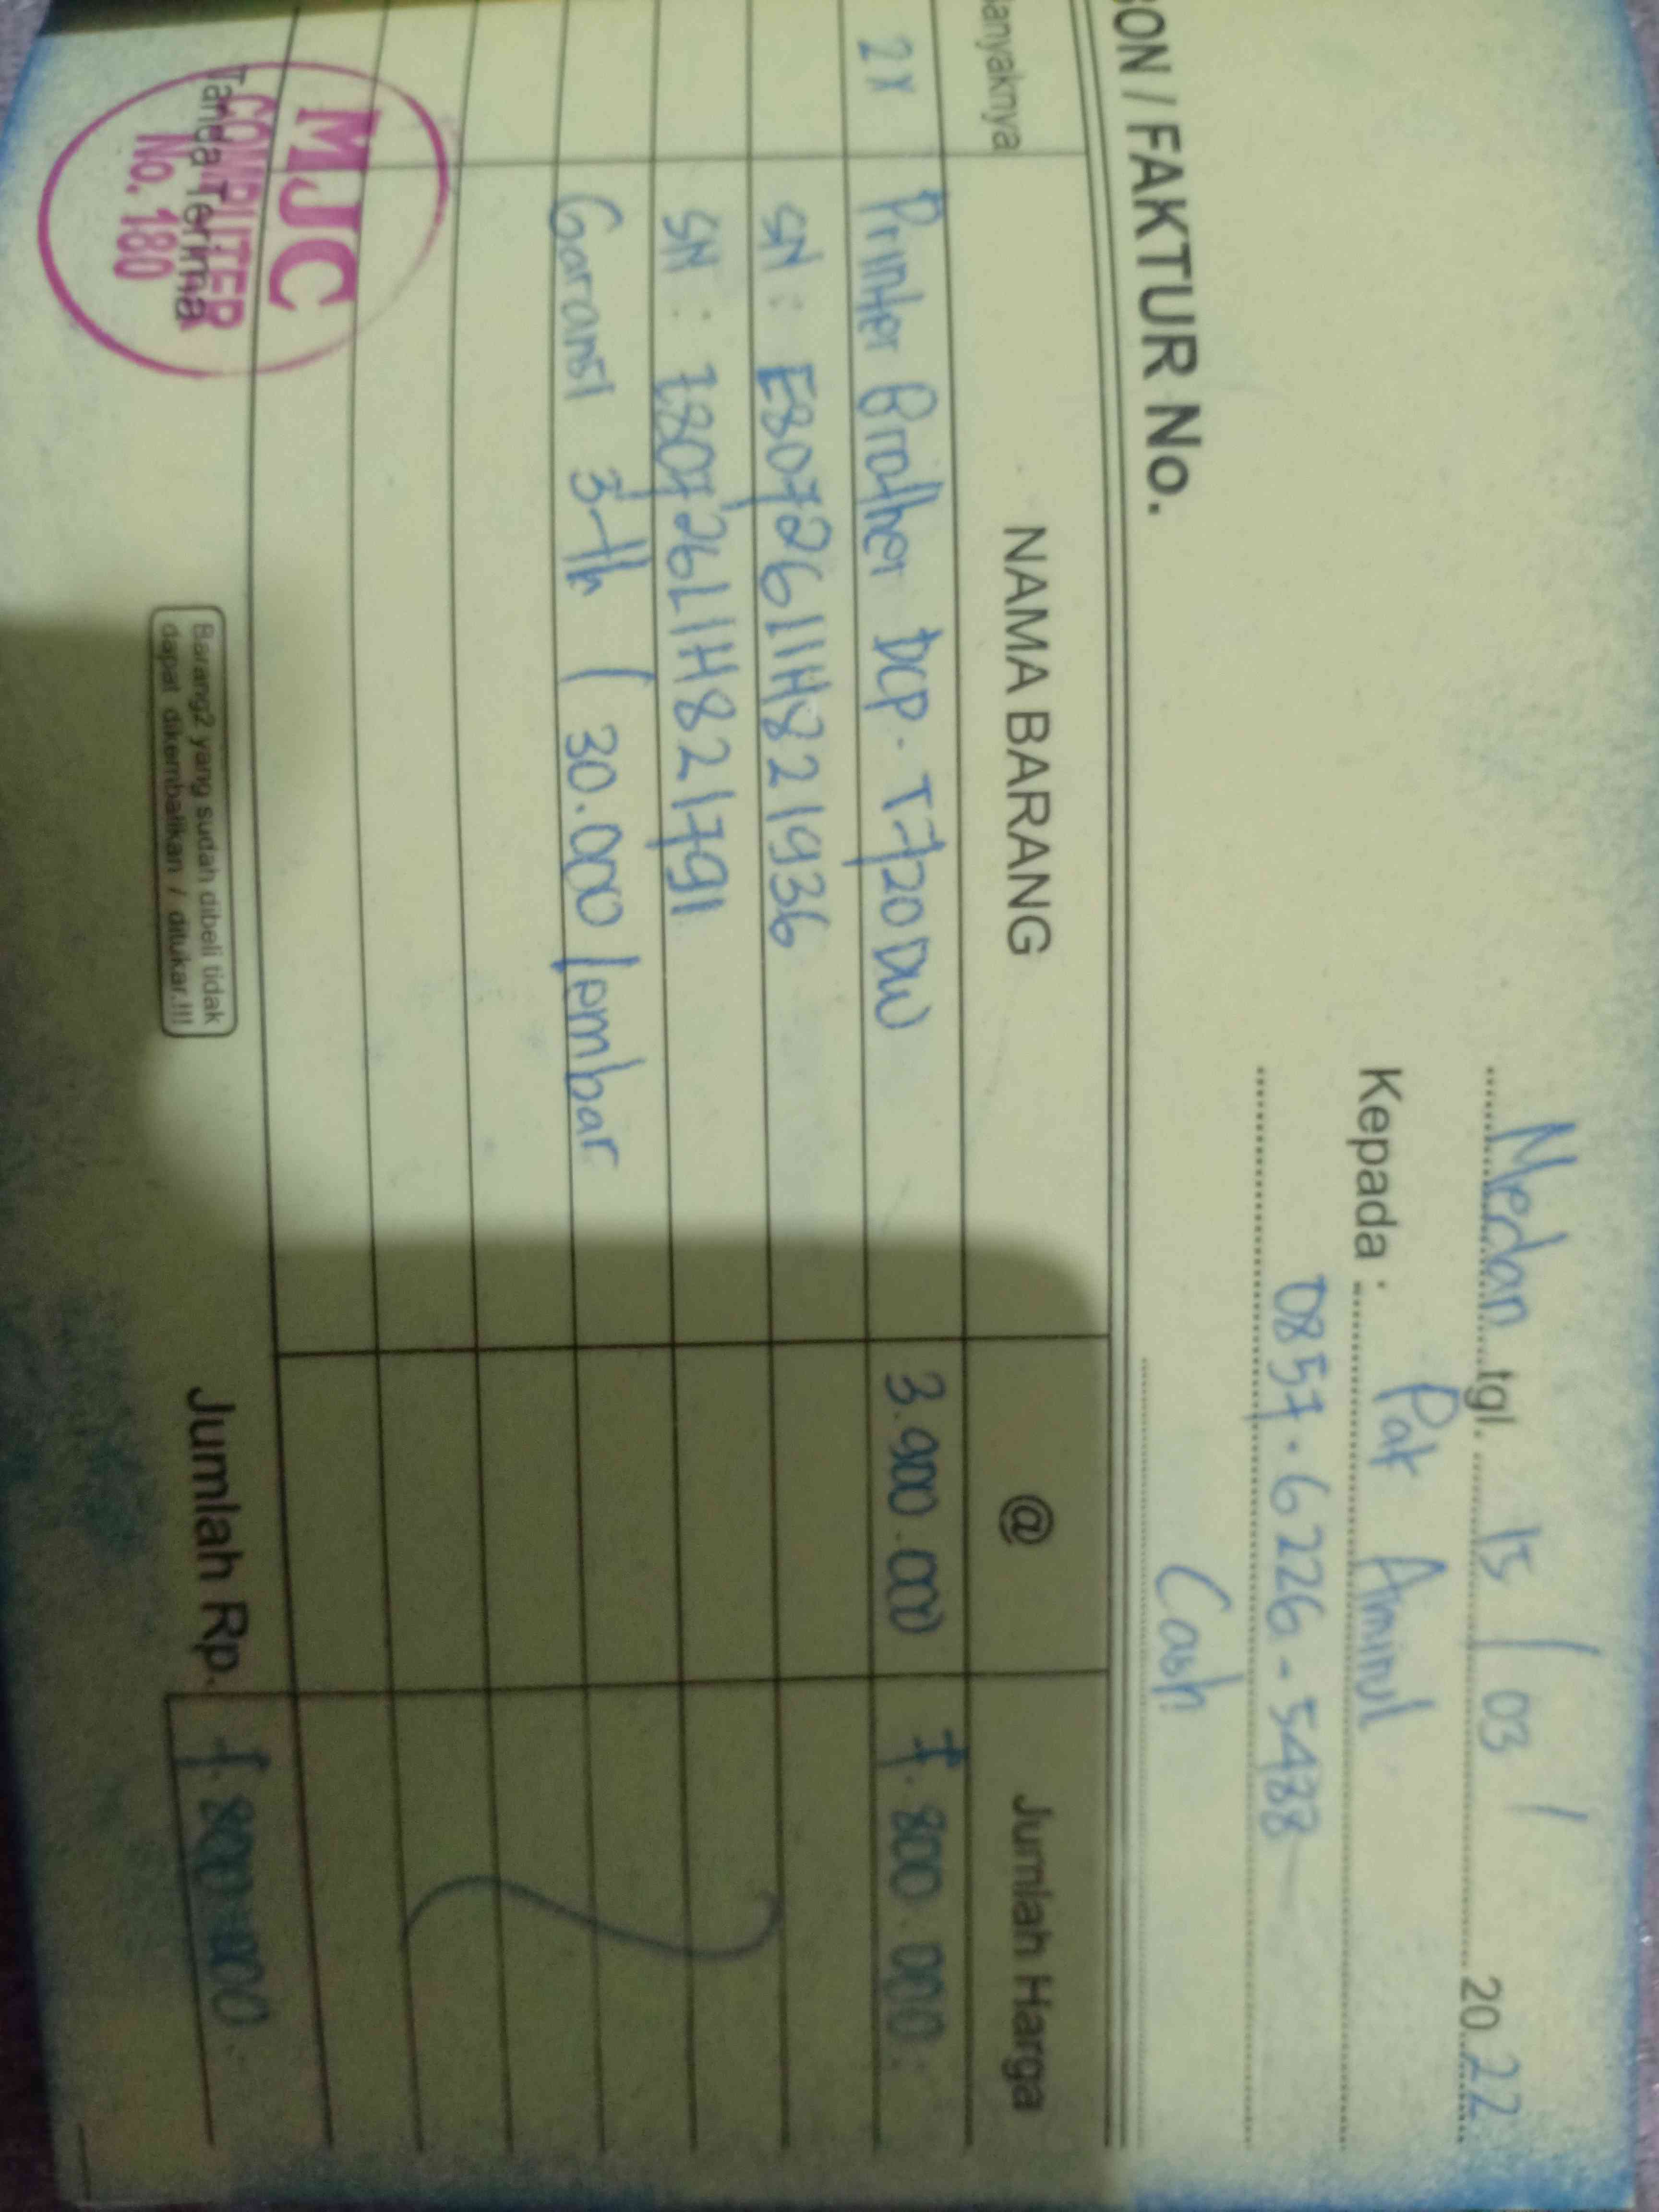 Medan tgl. 15 / 03 / 2022
Kepada : Pak Aminul
0857.6226-5488
Cash
BON / FAKTUR No.
anyaknya NAMA BARANG @ Jumlah Harga
2x Printer Brother DCP-T720DW 3.900.000 7.800.000
SN : E80726L1H821936
SN : E80726L1H821791
Garansi 3-th / 30.000 lembar
Tanda Terima
MJC
COMPUTER
No. 180
Barang2 yang sudah dibeli tidak
dapat dikembalikan / ditukar.!!!
Jumlah Rp. 7.800.000